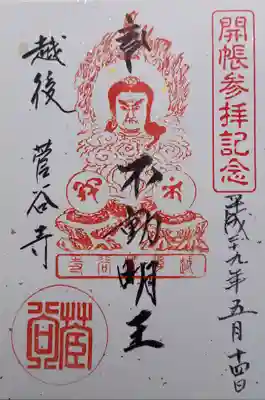 開帳参拝記念
平成九年五月十四日
奉
不動明王
越後 菅谷寺